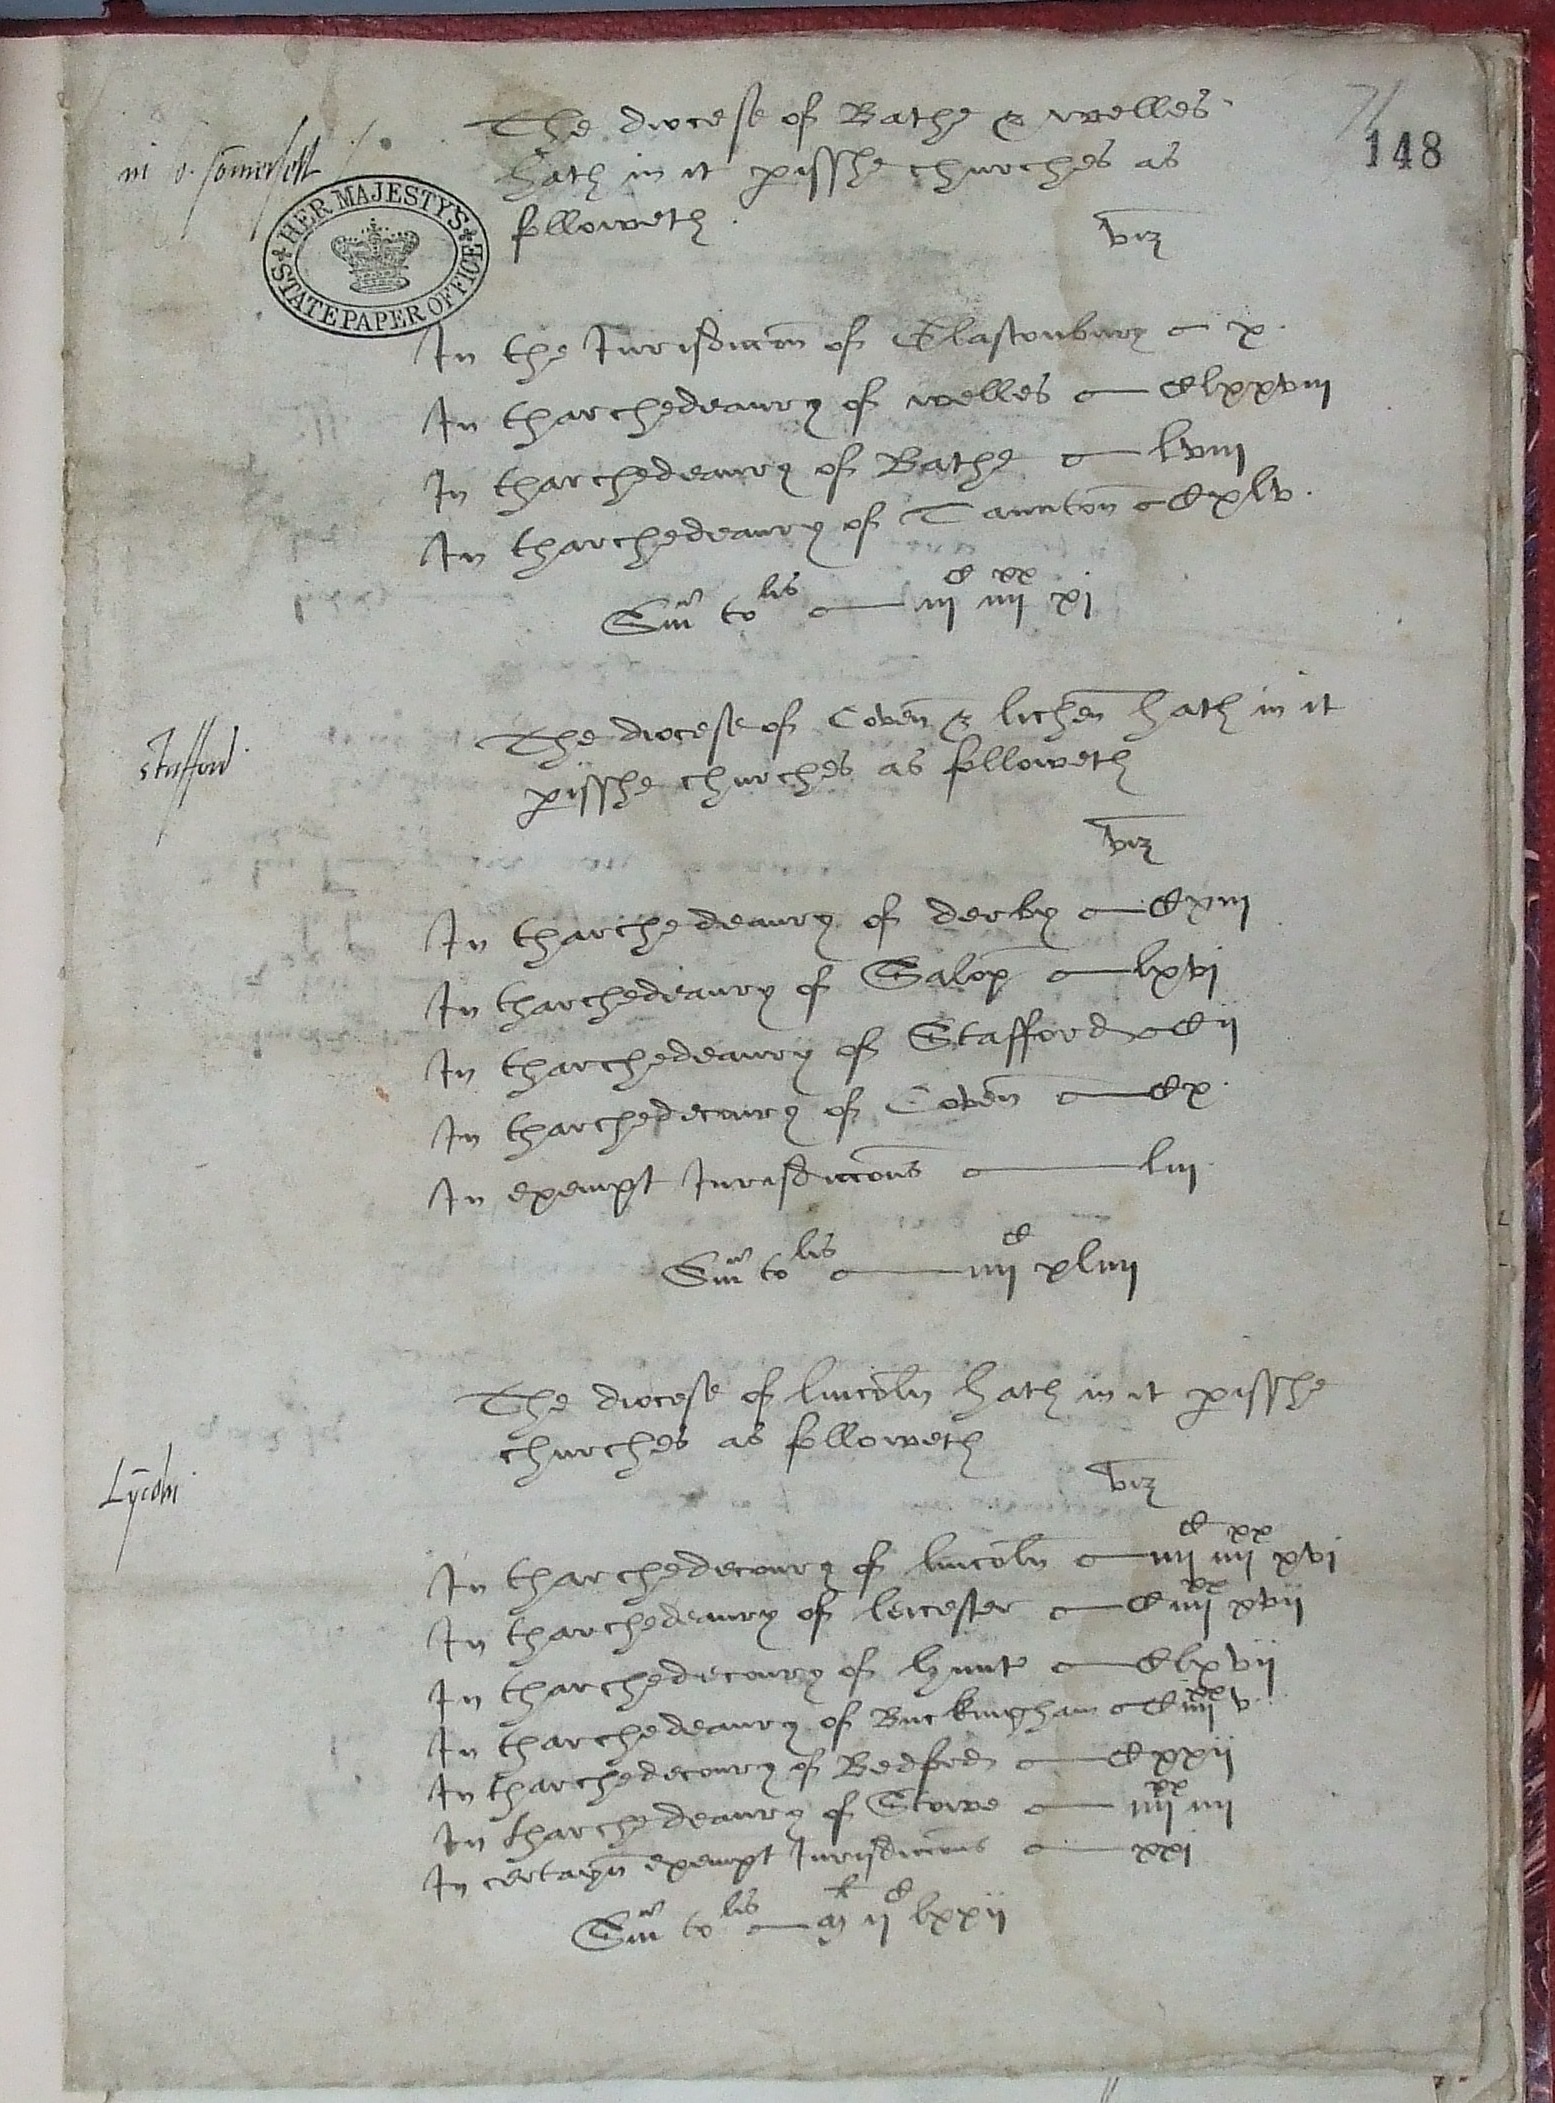 148
in b. somersett
HER MAJESTY'S STATE PAPER OFFICE
The diocese of Bathe & Welles
hath in it pisshe churches as
followeth
viz
In the Jurisdiccon of Glastonbury — x.
In tharchedeanry of Welles — Clxxviij
In tharchedeanry of Bathe — lviij
In tharchedeanry of Taunton — Cxlv.
Sm tolis — iijC iiijxx xj
Stafford
The diocese of Coven & lichen hath in it
pisshe churches as followeth
viz
In tharchedeanry of derby — Cxiij
In tharchedeanry of Salop — lxvj
In tharchedeanry of Stafford — Cij
In tharchedecoury of Coven — Cx.
In exempt Jurisdiccons — lij.
Sm tolis — iiijC xliij
The diocese of lincoln hath in it pisshe
churches as followeth
Lycoln
viz
In tharchedecoury of lincoln — iiijC iiijxx xvj
In tharchedeanry of leicester — C iiijxx xvij
In tharchedecoury of hunt — Clxvij
In tharchedeanry of Buckingham — C iiijxx v.
In tharchedecoury of Bedford — Cxxij
In tharchedeanry of Stowe — iiijxx iiij
In certayn exempt Jurisdiccons — xxj
Sm tolis — Ml ijC lxxij